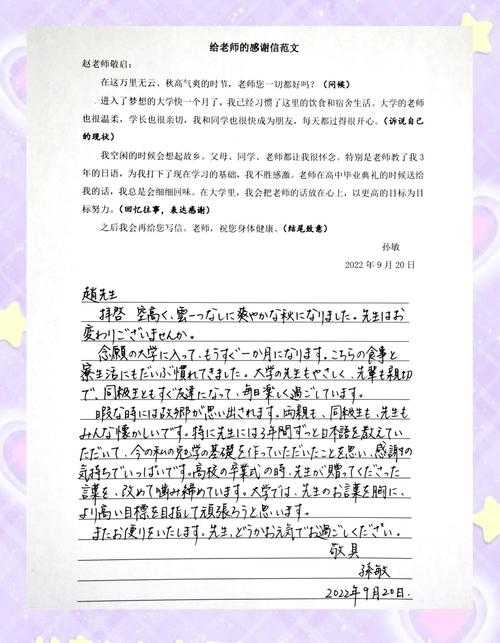 给老师的感谢信范文
赵老师敬启：
在这万里无云、秋高气爽的时节，老师您一切都好吗？（问候）
进入了梦想的大学快一个月了，我已经习惯了这里的饮食和宿舍生活。大学的老师
也很温柔，学长也很亲切，我和同学也很快成为朋友，每天都过得很开心。（诉说自己
的现状）
我空闲的时候会想起故乡。父母、同学、老师都让我很怀念。特别是老师教了我 3
年的日语，为我打下了现在学习的基础，我不胜感激。老师在高中毕业典礼的时候送给
我的话，我总是会细细回味。在大学里，我会把老师的话放在心上，以更高的目标为目
标努力。（回忆往事，表达感谢）
之后我会再给您写信。老师，祝您身体健康。（结尾致意）
孙敏
2022 年 9 月 20 日
趙先生
拝啓 空高く、雲一つなしに爽やかな秋になりました。先生はお
変わりございませんか。
念願の大学に入って、もうすぐ一か月になります。こちらの食事と
寮生活にもだいぶ慣れてきました。大学の先生もやさしく、先輩も親切
で、同級生ともすぐ友達になって、毎日楽しく過ごしています。
暇な時には故郷が思い出されます。両親も、同級生も、先生も
みんな懐かしいです。特に先生には3年間ずっと日本語を教えてい
ただいて、今の私の勉学の基礎を作っていただいたことを思い、感謝の
気持ちでいっぱいです。高校の卒業式の時、先生が贈ってくださった
言葉を、改めて噛み締めています。大学では、先生のお言葉を胸に、
より高い目標を目指して頑張ろうと思います。
またお便りをいたします。先生、どうかお元気でお過ごしください。
敬具
孫敏
2022年9月20日.